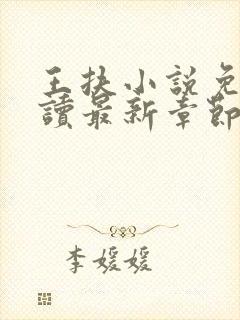 王扶小說免
讀最新章節
李媛媛